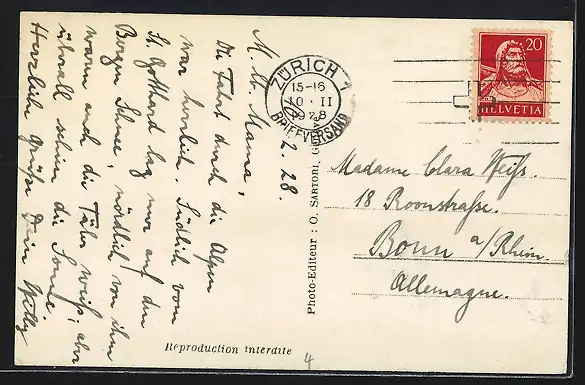 M. lb. Mama,
2. 28.
Die Fahrt durch die Alpen
war herrlich. Südlich vom
St. Gotthard lag nur auf den
Bergen Schnee, nördlich von ihm
waren auch die Täler weiß; aber
überall schien die Sonne.
Herzliche Grüße Dein
ZÜRICH 1
15-16
10·II
1928
BRIEFVERSAND
20
HELVETIA
Photo-Editeur : O. SARTORI,
Madame Clara Weiß.
18 Roonstraße.
Bonn a/Rhein.
Allemagne.
Reproduction interdite
4